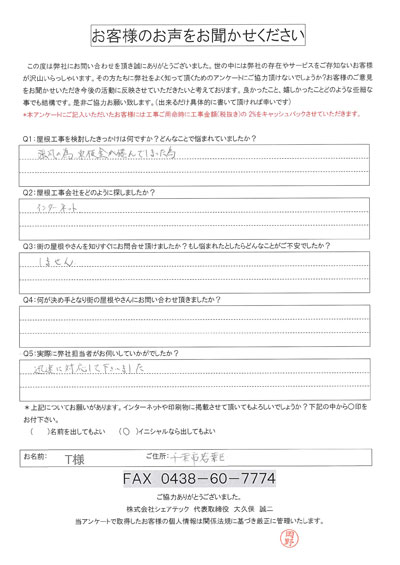 お客様のお声をお聞かせください
この度は弊社にお問い合わせを頂き誠にありがとうございました。世の中には弊社の存在やサービスをご存知ないお客様
が沢山いらっしゃいます。その方たちに弊社をよく知って頂くためのアンケートにご協力頂けないでしょうか?お客様のご意見
をお聞かせいただき今後の活動に反映させていただきたいと考えております。良かったこと、嬉しかったことどのような些細な
事でも結構です。是非ご協力お願い致します。(出来るだけ具体的に書いて頂ければ幸いです)
*本アンケートにご記入いただいたお客様には工事ご用命時に工事金額(税抜き)の 2%をキャッシュバックさせていただきます。
Q1:屋根工事を検討したきっかけは何ですか?どんなことで悩まれていましたか?
強風の為 屋根が飛んでしまった為
Q2:屋根工事会社をどのように探しましたか?
インターネット
Q3:街の屋根やさんを知りすぐにお問合せ頂けましたか?もし悩まれたとしたらどんなことがご不安でしたか?
しません
Q4:何が決め手となり街の屋根やさんにお問い合わせ頂きましたか?
Q5:実際に弊社担当者がお伺いしていかがでしたか?
迅速に対応して下さいました
*上記についてお願いがあります。インターネットや印刷物に掲載させて頂いてもよろしいでしょうか?下記の中から〇印を
お付下さい。
( )名前を出してもよい (〇)イニシャルなら出してもよい
お名前: T様 ご住所: 千葉市若葉区
FAX 0438-60-7774
ご協力ありがとうございました。
株式会社シェアテック 代表取締役 大久保 誠二
当アンケートで取得したお客様の個人情報は関係法規に基づき厳正に管理いたします。